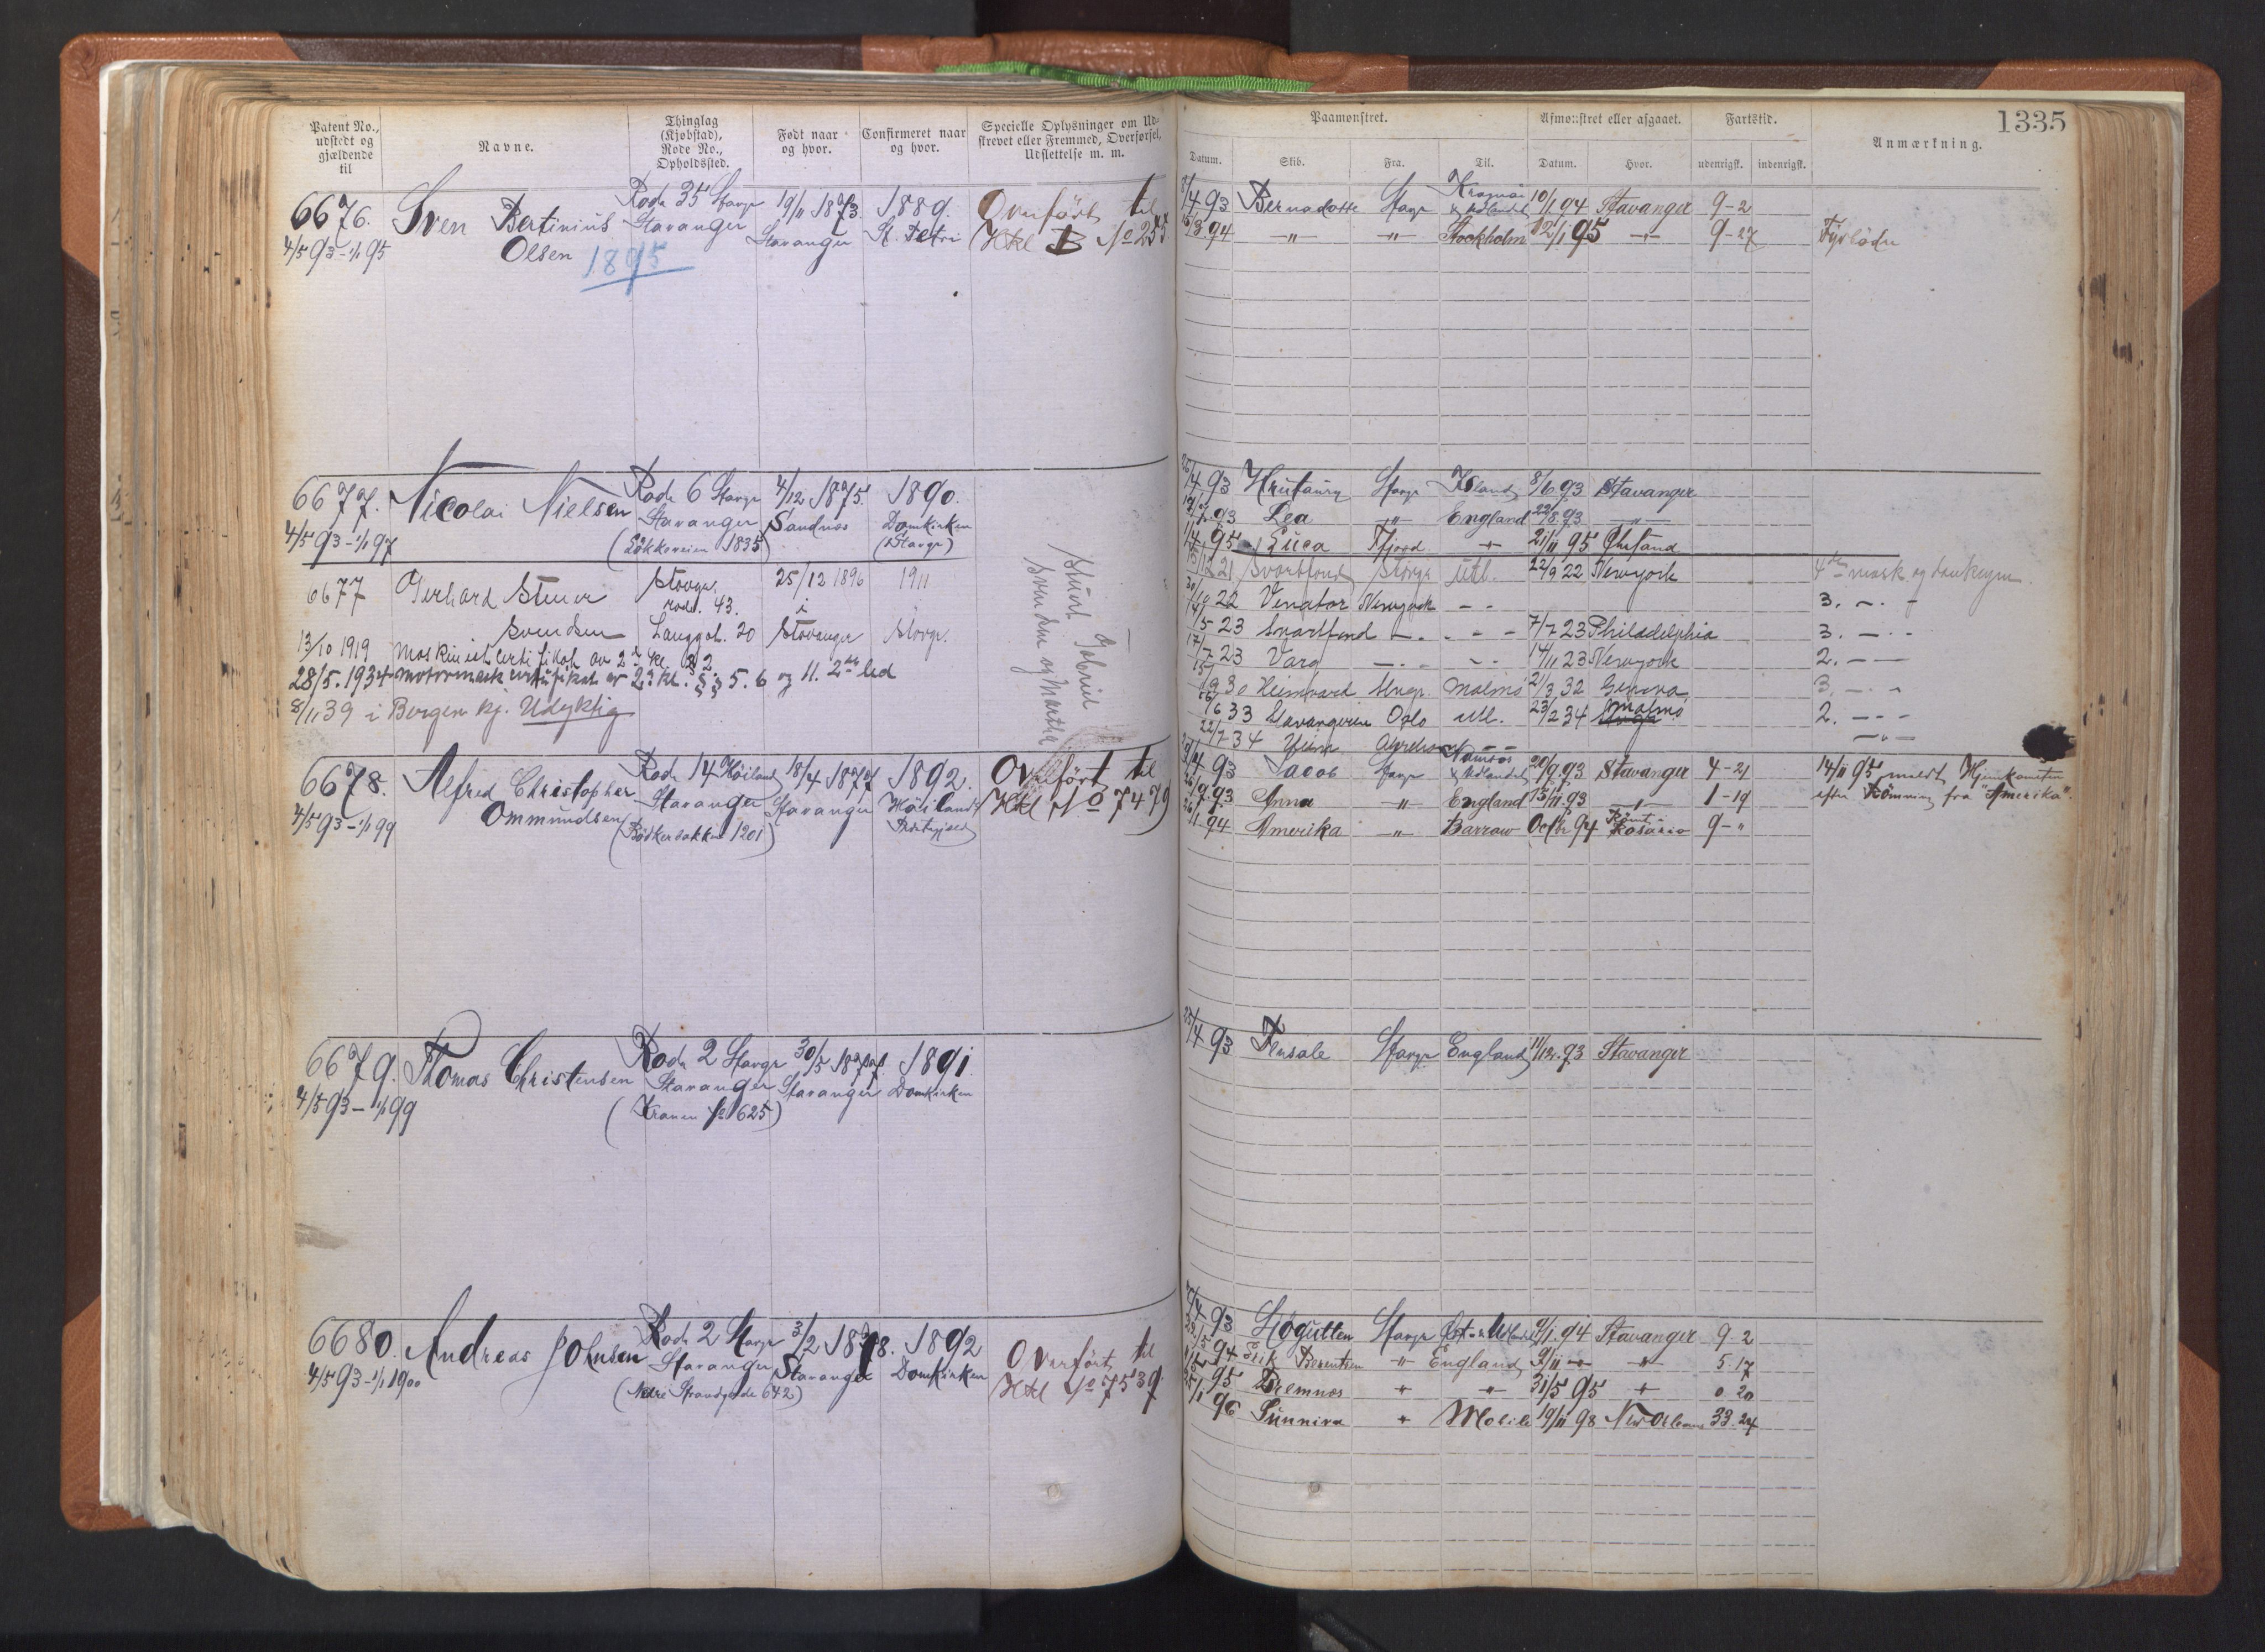 1335
Patent No., udstedt og gjældende til
Navne.
Thinglag (Kjøbstad), Rode No., Opholdssted.
Født naar og hvor.
Confirmeret naar og hvor.
Specielle Oplysninger om Udskrevet eller Fremmed, Overførsel, Udslettelse m. m.
Paamønstret.
Afmønstret eller afgaaet.
Fartstid.
Anmærkning.
Datum. Skib. Fra. Til. Datum. Hvor. udenrigsk. indenrigsk.
6676. Sven Bertinius Rode 35 Stavgr 19/11 1873. 1889. Overført til
4/5 93 - 1/1 95 Olsen Stavanger Stavanger St. Petri Hkl B No 255
1895
4 93 Bernadotte Stavgr & Udlandet 10/1 94 Stavanger 9-2
15/3 94 -"- -"- Stockholm 12/1 95 -"- 9-27 Fyrböder
6677. Nicolai Nielsen Rode 6 Stavgr 4/12 1875. 1890.
4/5 93 - 1/1 97 Stavanger Sandnes Domkirken
(Lökkeveien 1835) (Stavgr)
4 93 Stavgr Island 8/6 93 Stavanger
93 Lea -"- England 22/8 93 -"-
95 Luca Tfjord -"- 21/11 95 Chrsand
6677 Gerhard Stener Stavgr. 25/12 1896 1911
rode. 43. i
Svendsen Langgt. 20 Stavanger Stavgr.
13/10 1919 Maskinistcertifikat av 2 kl. § 2
28/5. 1934 motormask certifikat av 2. kl. §§ 5. 6 og 11. 2det led
8/11 39 i Bergen kj. Udyktig
Gabriel
Svendsen og Martha
12 21 Svartfond Stavgr Utl. 22/9 22 Newyork 4de mask og donkeym.
30/10 22 Venator Newyork - - 3. - . -
14/5 23 Svartfond - . - - - 7/7 23 Philadelphia 3. - . -
17/7 23 Varg - . - - . - 14/11 23 Newyork 2. - -
30 Heimvard Malmö 21/3 32 Genova 3. - . -
6 33 Stavangeren Oslo Utl. 23/2 34 Malmö 2. - - -
22/7 34 - - - " -
6678. Alfred Christopher Rode 14 Höiland 18/4 1877 1892. Overført til
4/5 93 - 1/1 99 Ommundsen Stavanger Stavanger Höilands Hkl No 7479
(Bödkerbakken 1201) Prestegjeld
4 93 Jacob Stavgr Namsos & Udlandet 20/9 93 Stavanger 4-21 14/11 95 meldt Hjemkommen
26/9 93 Anna -"- England 15/11 93 -"- 1-19 efter Römning fra "Amerika".
94 Amerika -"- Barrow Octb 94 Römt i Rosario 9-"
6679. Thomas Christensen Rode 2 Stavgr 30/5 1877. 1891.
4/5 93 - 1/1 99 Stavanger Stavanger Domkirken
(Kranen No 625)
25/4 93 Tensale Stavgr England 11/12 93 Stavanger
6680. Andreas Johnsen Rode 2 Stavgr 3/2 1878. 1892 Overført til
4/5 93 - 1/1 1900 Stavanger Stavanger Domkirken Hkl No 7539
(Nedre Strandgade 642)
4 93 Sjøgutten Stavgr 1 94 Stavanger 9-2
5 94 Erik Berentsen -"- England 9/11 -"- -"- 5-17
95 Bremnes -"- -"- 31/5 95 -"- 0-20
25/1 96 Sunniva -"- Mobile 19/11 98 New Orleans 33-24